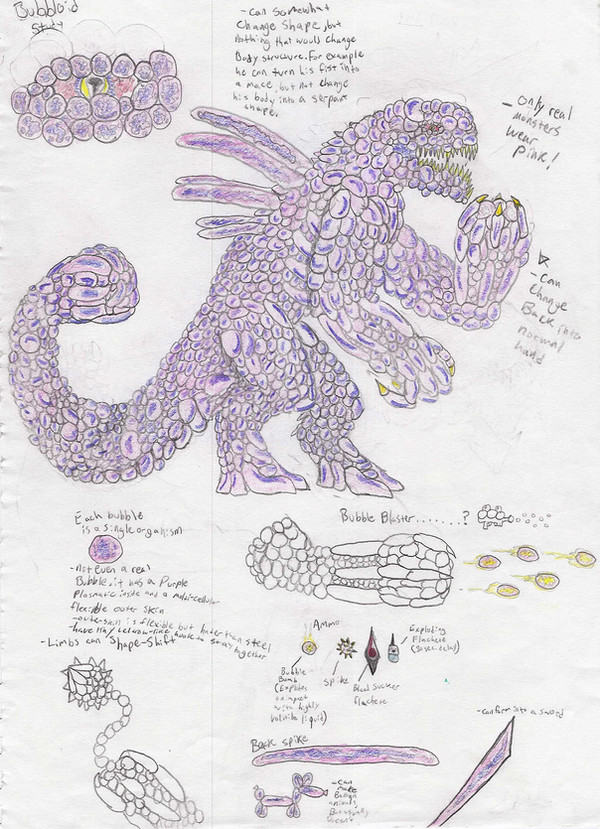 Bubbloid
Study
- Can Somewhat
Change Shape, but
nothing that would change
Body structure. For example
he can turn his fist into
a mace, but not change
his body into a serpant
shape.
- only real
monsters
wear
Pink!
- Can
Change
Back into
normal
hand
Each bubble
is a single organism
- Not even a real
Bubble. it has a Purple
Plasmatic inside and a multi-cellular
flexible outer skin
- outer skin is flexible but harder than steel
- have Velcro-like hooks to stay together
- Limbs can Shape-Shift
Bubble Blaster.......?
Ammo
Bubble
Bomb
(Explodes
on impact
with highly
volatile liquid)
Spike
Blood Sucker
flachete
Exploding
Flachete
Back Spike
- Can
make
Balloon
animals,
- can form into a sword